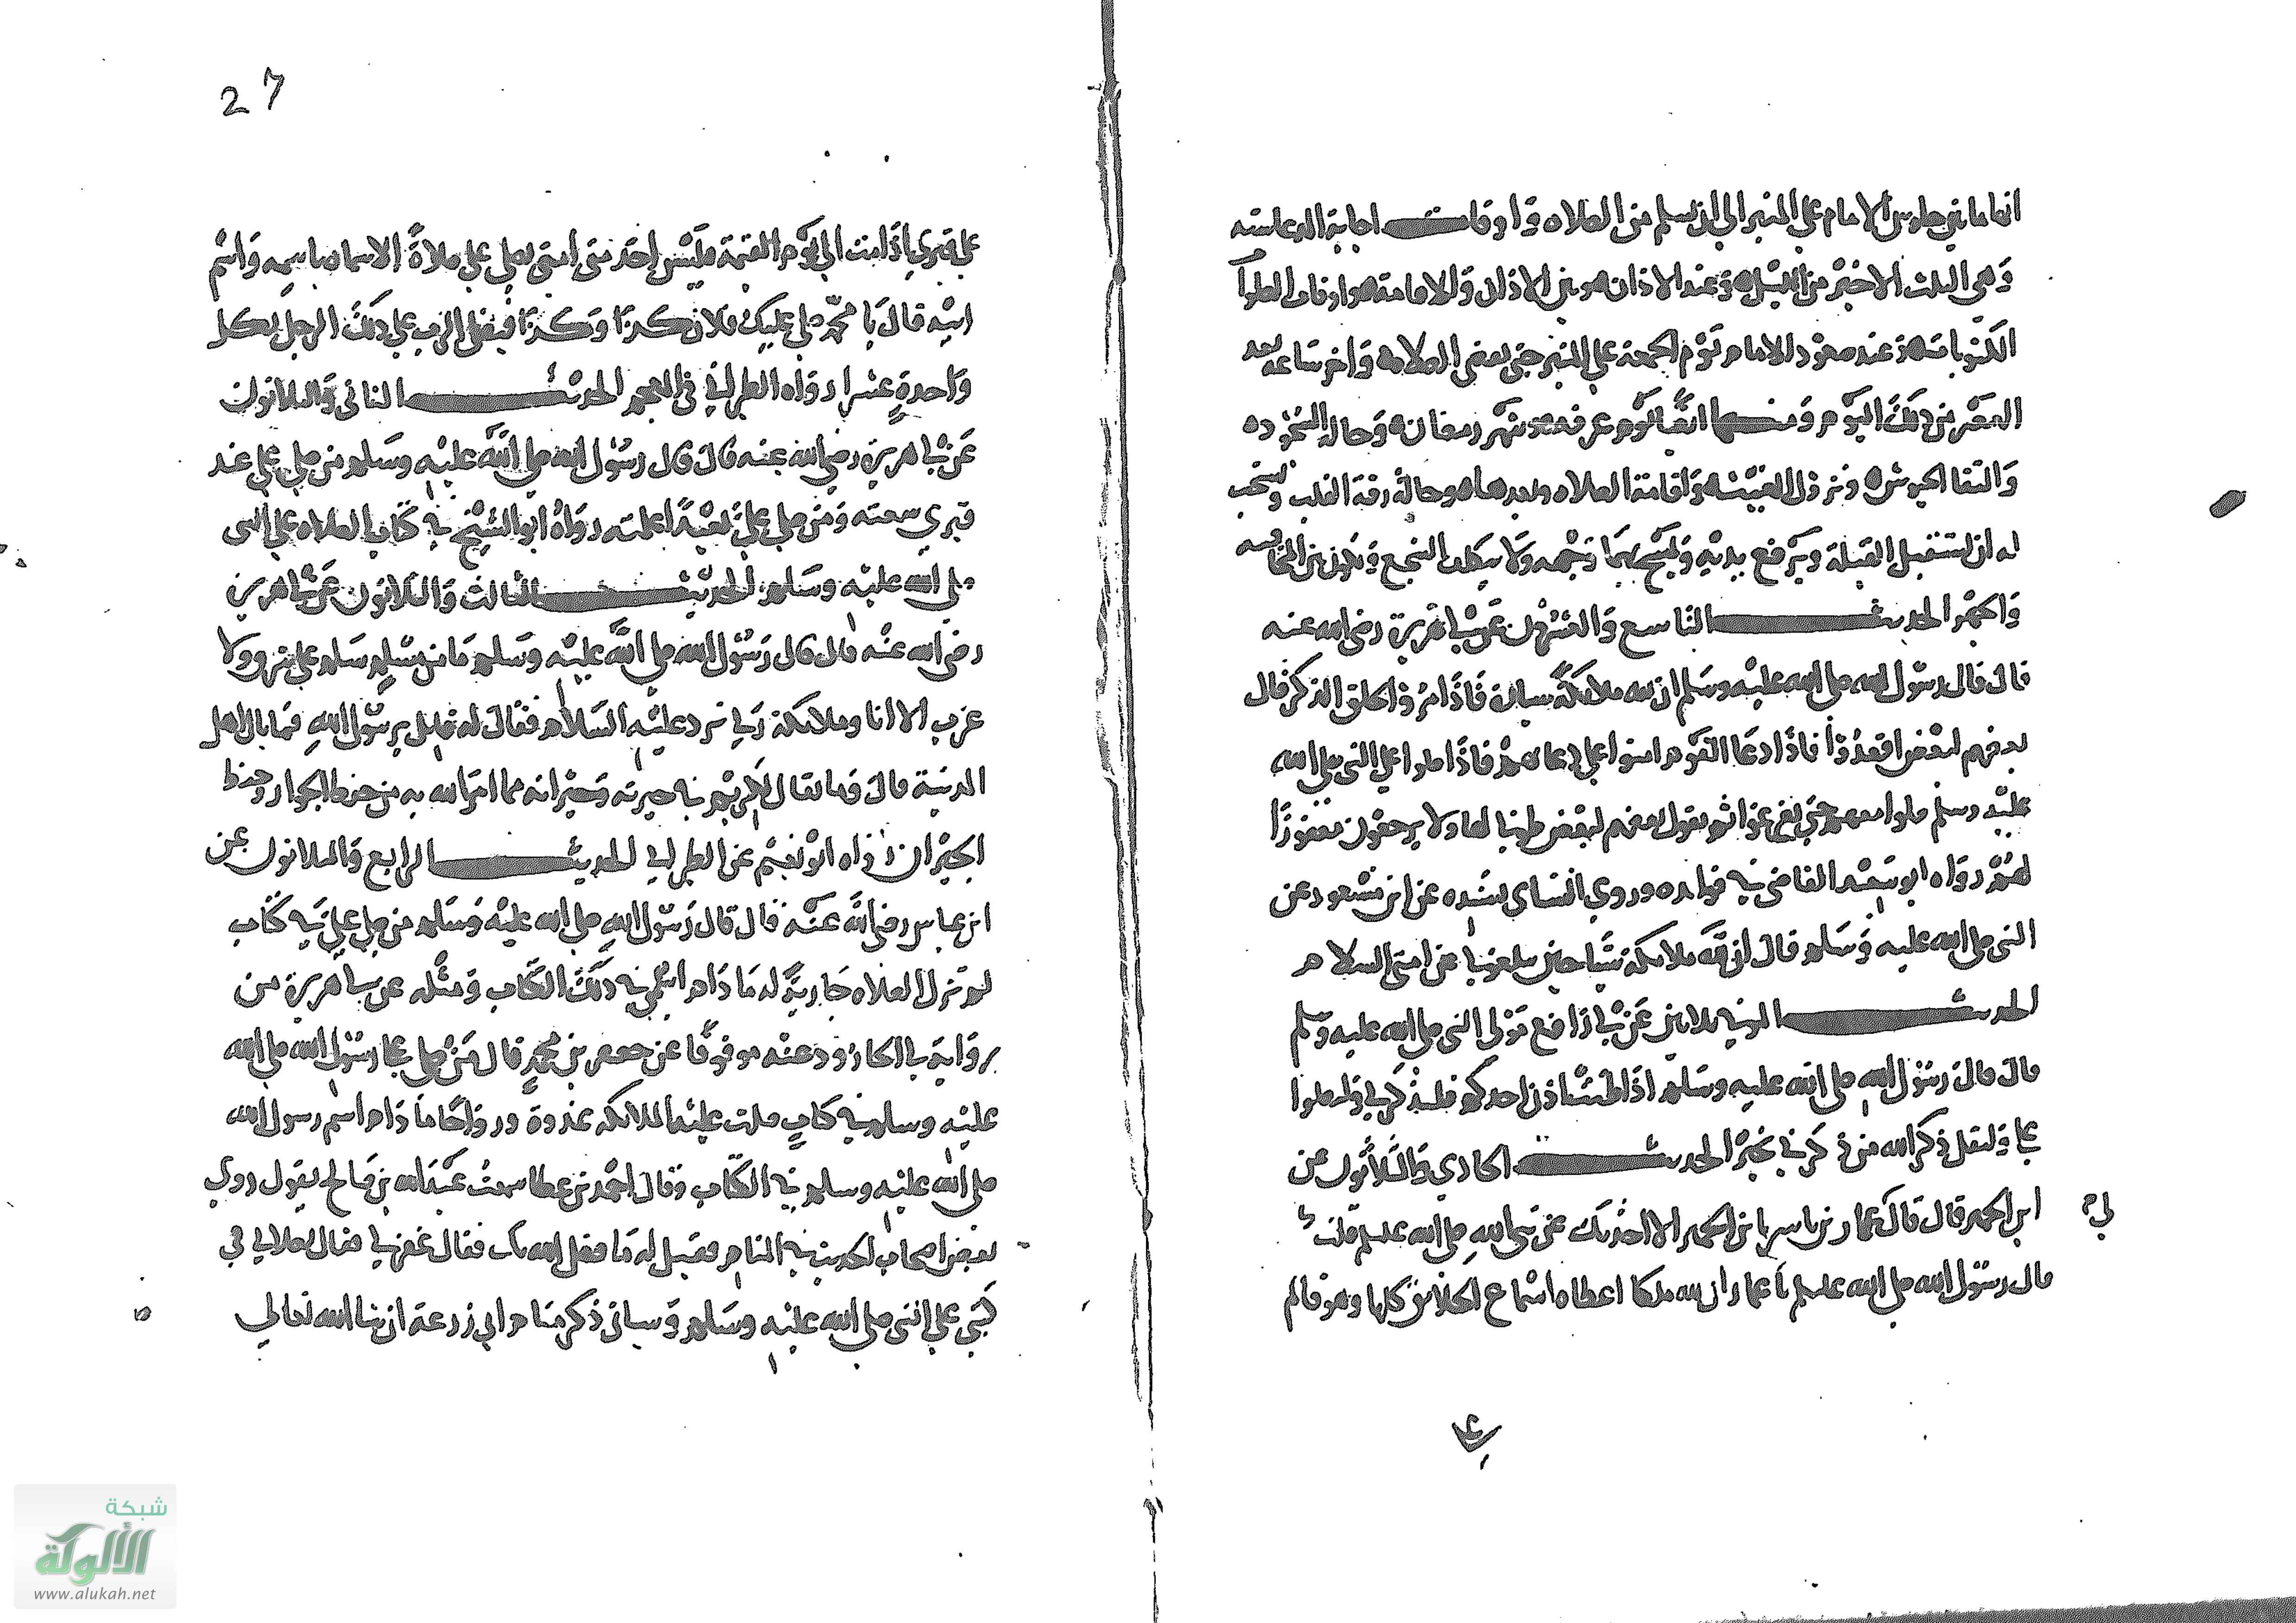 انها ما بين جلوس الامام علي المنبر الي ان يسلم من الصلاه واوقات اجابة الدعا سته
وهي الثلث الاخير من الليل وعند الاذان وبين الاذان والاقامة وادبار الصلوا
المكتوبات وعند صعود الامام يوم الجمعة علي المنبر حتي يقضي الصلاه واخر ساعه بعد
العصر من ذلك اليوم ومنها ايضا يوم عرفه وشهر رمضان وحالة السجود
والتقا الجيوش ونزول الغيث واقامة الصلاه وبعدها وحالة رقة القلب ويستحب
له ان يستقبل القبلة ويرفع يديه ويمسح بهما وجهه ولا يتكلف السجع ويكون بين المخافته
والجهر الحديث التاسع والعشرون عن ابي هريرة رضي الله عنه
قال قال رسول الله صلي الله عليه وسلم ان لله ملائكة سيارة فاذا مروا بحلق الذكر قال
بعضهم لبعض اقعدوا فاذا دعا القوم امنوا علي دعائهم فاذا صلوا علي النبي صلي الله
عليه وسلم صلوا معهم حتي يفرغوا ثم يقول بعضهم لبعض طوبا لهاولا يرجعون مغفورًا
لهم رواه ابو سعيد القاضي في فوايده وروي النساي بسنده عن ابن مسعود عن
النبي صلي الله عليه وسلم قال ان لله ملائكة سياحين يبلغوني عن امتي السلام
الحديث الثلاثين عن ابي رافع مولي النبي صلي الله عليه وسلم
قال قال رسول الله صلي الله عليه وسلم اذا طنت اذن احدكم فليذكرني وليصلوا
علي وليقل ذكر الله من ذكرني بخير الحديث الحادي والثلاثون عن
ابن الحميري قال قال عمار بن ياسر يا بن الحمير الا احدثك عن نبي الله صلي الله عليه وسلم قلت
قال رسول الله صلي الله عليه وسلم يا عمار ان لله ملكا اعطاه اسماع الخلائق كلها وهو قائم
27
علي قبري اذا مت الي يوم القيمة فليس احد من امتي يصلي علي صلاةً الا سماه باسمه واسم
ابيه قال يا محمد صلي عليك فلان كذا وكذا فيصلي الرب علي ذلك الرجل بكل
واحدة عشرا رواه الطبراني في المعجم الحديث الثاني والثلاثون
عن ابي هريرة رضي الله عنه قال قال رسول الله صلي الله عليه وسلم من صلي علي عند
قبري سمعته ومن صلي علي بعيدًا اعلمته رواه ابو الشيخ في كتاب الصلاه علي النبي
صلي الله عليه وسلم الحديث الثالث والثلاثون عن ابي هريرة
رضي الله عنه قال قال رسول الله صلي الله عليه وسلم ما من مسلم سلم علي في شرق ولا
غرب الا انا وملائكة ربي نرد عليه السلام فقال له قايل يرسول الله فما بال اهل
المدينة قال وما يقال لكريم في جيرته وجيرانه مما امر الله به من حفظ الجوار وحفظ
الجيران رواه ابو نعيم عن الطبراني الحديث الرابع والثلاثون عن
ابن عباس رضي الله عنه قال قال رسول الله صلي الله عليه وسلم من صلي علي في كتاب
لم تزل الصلاه جارية له ما دام اسمي في ذلك الكتاب ومثله عن ابي هريرة من
رواية ابي الجارود عنه موقوفًا عن جعفر بن محمد قال من صلي علي رسول الله صلي الله
عليه وسلم في كتاب صلت عليه الملائكه غدوة ورواحًا ما دام اسم رسول الله
صلي الله عليه وسلم في الكتاب وقال احمد بن عطا سمعت عبد الله بن صالح يقول روي
بعض اصحاب الحديث في المنام فقيل له ما فعل الله بك فقال غفر لي فقال بصلاتي في
كتبي علي النبي صلي الله عليه وسلم وسياتي ذكر منام ابي زرعة ان شا الله تعالي
شبكة
الألوكة
www.alukah.net